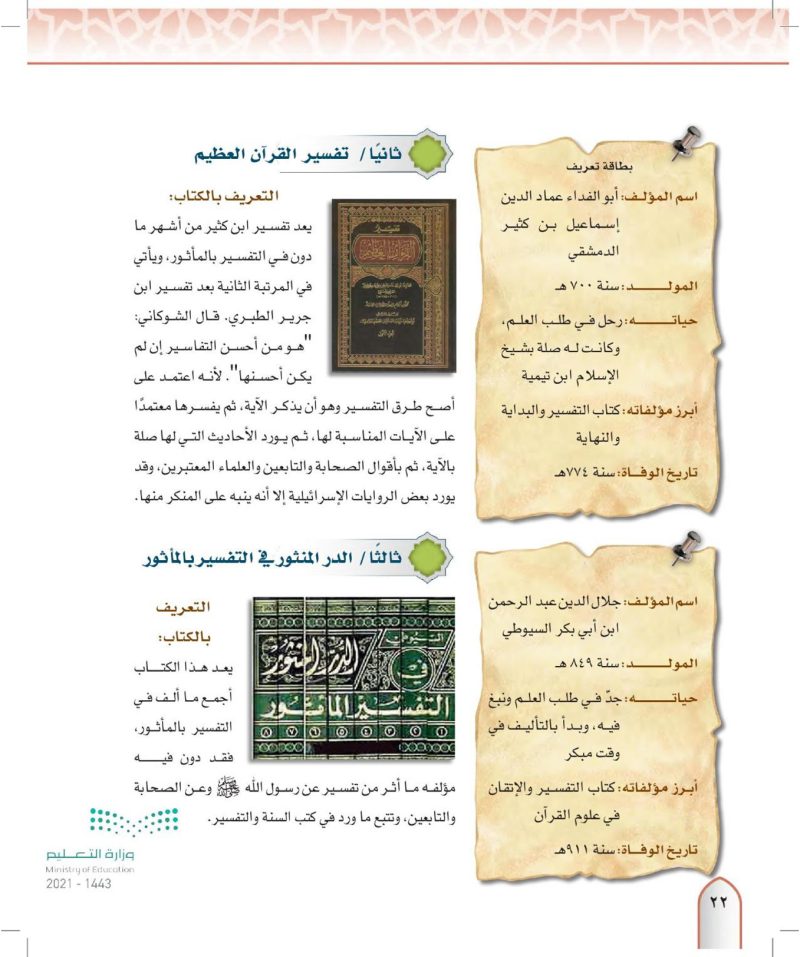 بطاقة تعريف
اسم المؤلف: أبو الفداء عماد الدين
إسماعيل بن كثير
الدمشقي
المولد: سنة ٧٠٠ هـ
حياته: رحل في طلب العلم،
وكانت له صلة بشيخ
الإسلام ابن تيمية
أبرز مؤلفاته: كتاب التفسير والبداية
والنهاية
تاريخ الوفاة: سنة ٧٧٤هـ
ثانيًا/ تفسير القرآن العظيم
التعريف بالكتاب:
يعد تفسير ابن كثير من أشهر ما
دون في التفسير بالمأثور، ويأتي
في المرتبة الثانية بعد تفسير ابن
جرير الطبري. قال الشوكاني:
"هو من أحسن التفاسير إن لم
يكن أحسنها". لأنه اعتمد على
أصح طرق التفسير وهو أن يذكر الآية، ثم يفسرها معتمدًا
على الآيات المناسبة لها، ثم يورد الأحاديث التي لها صلة
بالآية، ثم بأقوال الصحابة والتابعين والعلماء المعتبرين، وقد
يورد بعض الروايات الإسرائيلية إلا أنه ينبه على المنكر منها.
تفسير
القرآن العظيم
اسم المؤلف: جلال الدين عبد الرحمن
ابن أبي بكر السيوطي
المولد: سنة ٨٤٩ هـ
حياته: جدّ في طلب العلم ونبغ
فيه، وبدأ بالتأليف في
وقت مبكر
أبرز مؤلفاته: كتاب التفسير والإتقان
في علوم القرآن
تاريخ الوفاة: سنة ٩١١هـ
ثالثًا/ الدر المنثور في التفسير بالمأثور
التعريف
بالكتاب:
يعد هذا الكتاب
أجمع ما ألف في
التفسير بالمأثور،
فقد دون فيه
مؤلفه ما أثر من تفسير عن رسول الله ﷺ وعن الصحابة
والتابعين، وتتبع ما ورد في كتب السنة والتفسير.
السيوطي
الدر المنثور
في
التفسير المأثور
١ ٢ ٣ ٤ ٥ ٦ ٧ ٨
وزارة التعليم
Ministry of Education
2021 - 1443
٢٢